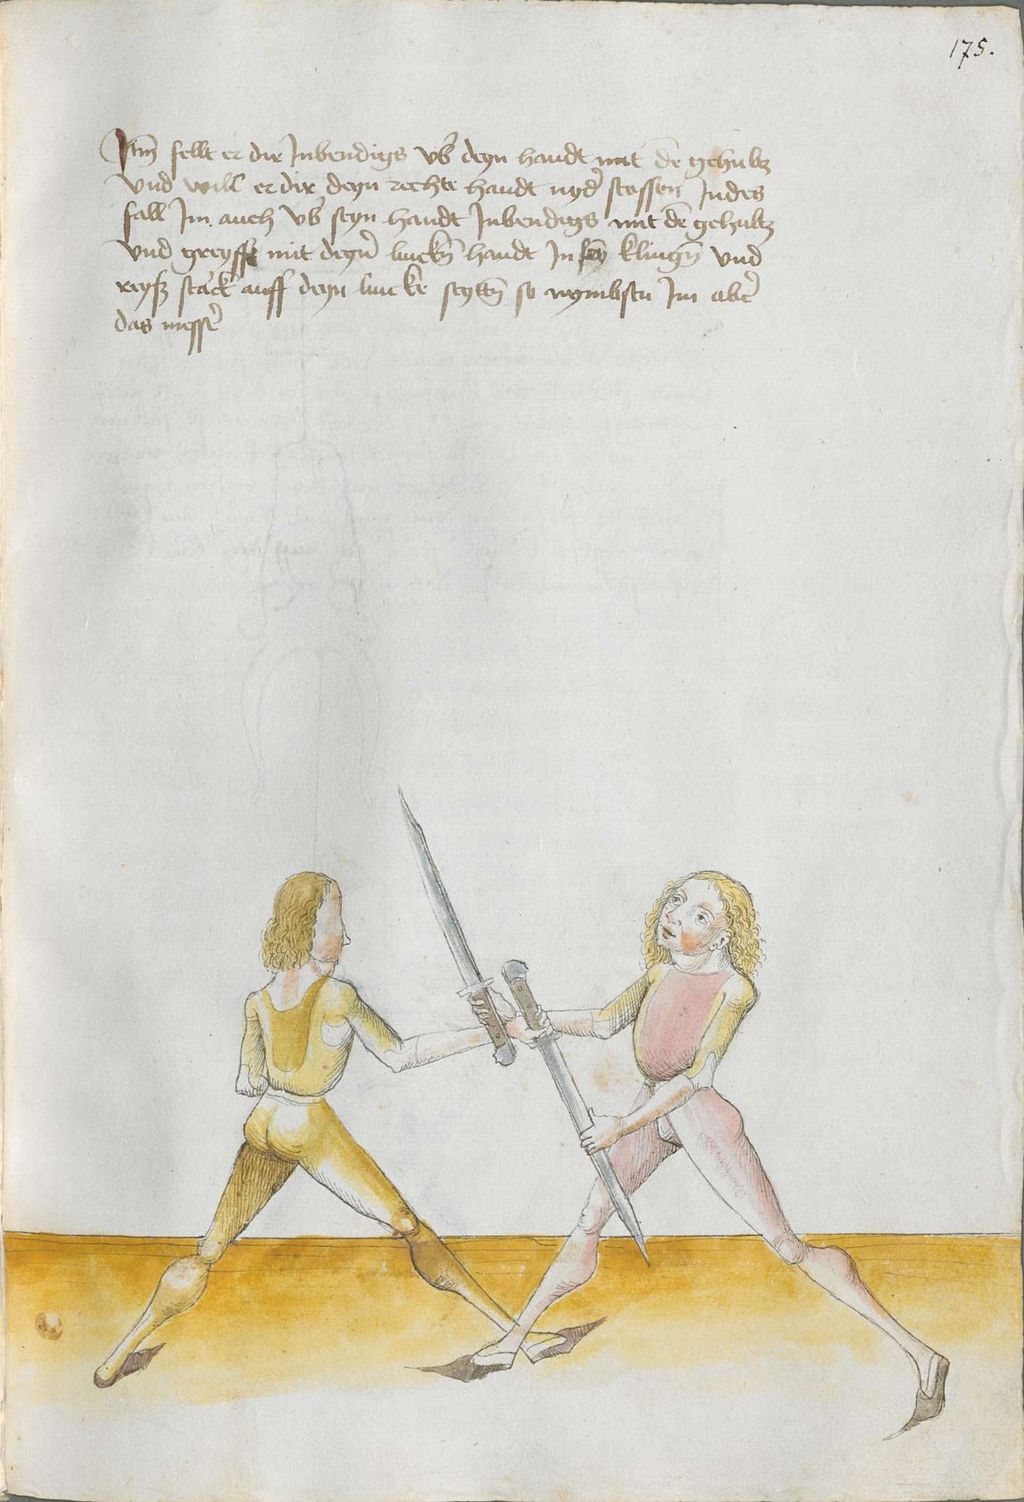 175.
Itm̄ fellt er dir Inbendigs vb̄ deyn handt mit dē gehultz
vnd will er dir deyn rechte handt nyd̄ stossen Indes
fall Im auch vb̄ seyn handt Inbendigs mit dē gehultz
vnd greyff mit deyn̄ linckn̄ handt In sey̅ klingn̄ vnd
reysz starck auff deyn lincke seyttn̄ so nymbstu Im aber̄
das messer̄